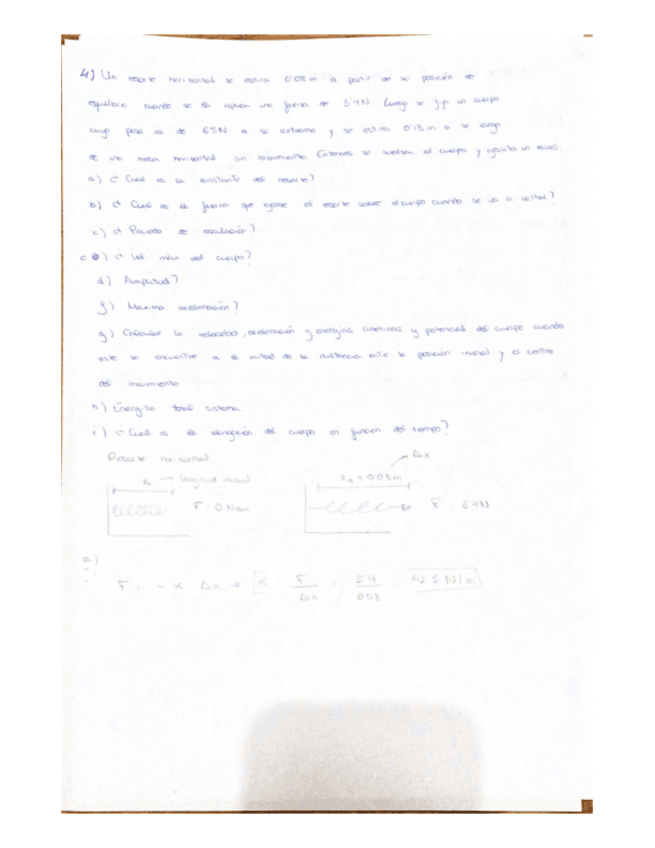 4) Un resorte horizontal se estira 0'08 m a partir de su posición de
equilibrio cuando se le aplica una fuerza de 3'4N Luego se fija un cuerpo
cuyo peso es de 65N a su extremo y se estira 0'13 m a lo largo
de una mesa horizontal sin rozamiento. Entonces se suelta el cuerpo y
a) ¿Cual es la constante del resorte?
b) ¿Cual es la fuerza que ejerce el resorte sobre el cuerpo cuando se va a soltar?
c) ¿Periodo de oscilación?
¿Vel máx del cuerpo?
d) Amplitud?
f) Maxima aceleración?
g) Calcular la velocidad, aceleración y energías cineticas y potencial del cuerpo cuando
este se encuentre a la mitad de la distancia entre la posición inicial y el centro
del movimiento
h) Energía total sistema
i) ¿Cual es la elongación del cuerpo en función del tiempo?
Resorte horizontal
Δx
x₀ → longitud inicial
x₀ + 0.08m
F: 0 New
F: 3'4N
a)
F = - K Δx → K = F / Δx = 3'4 / 0'08 = 42'5 N/m